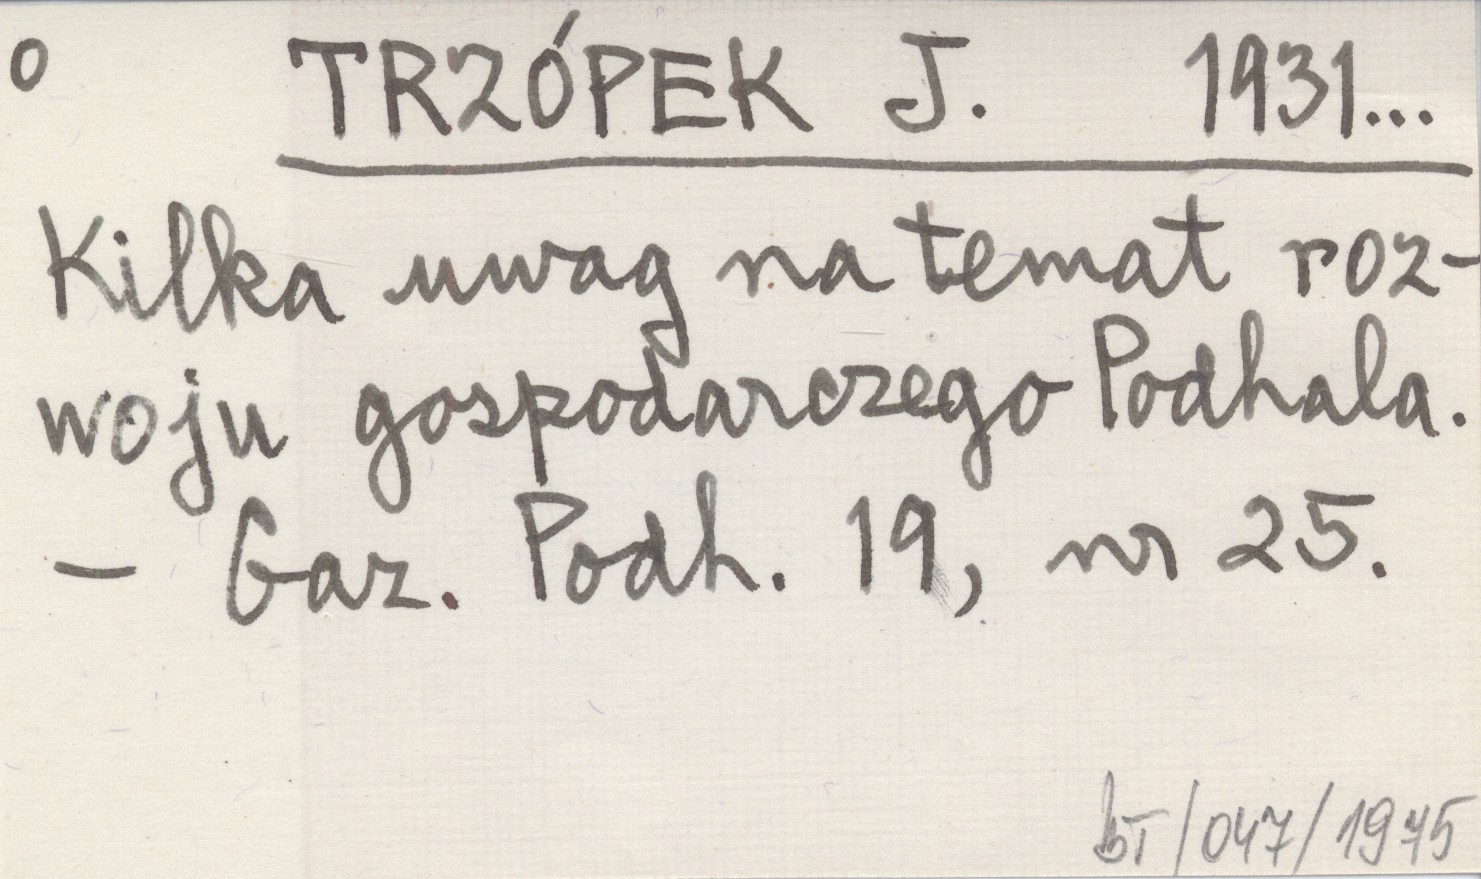 o TRZÓPEK J. 1931...
Kilka uwag na temat roz-
woju gospodarczego Podhala.
— Gaz. Podh. 19, nr 25.
bT/047/1975